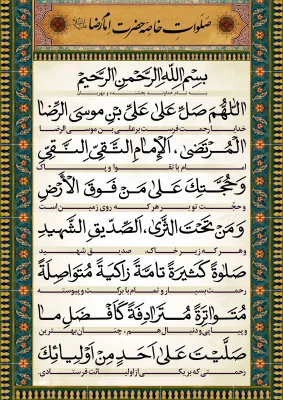 صلوات خاصه حضرت امام رضا
بِسْمِ اللهِ الرَّحْمنِ الرَّحيمِ
بنام خداوند بخشنده و مهربان
اَللّهُمَّ صَلِّ عَلى عَلِىِّ بْنِ مُوسَى الرِّضَا
خدایا رحمت فرست بر على بن موسى الرضا
الْمُرْتَضى، اَلْإِمامِ التَّقِىِّ النَّقِىِّ
امام با تقوا و پاک
وَحُجَّتِكَ عَلى مَنْ فَوْقَ الْأَرْضِ
و حجّت تو بر هر که روى زمین است
وَمَنْ تَحْتَ الثَّرى، اَلصِّدّيقِ الشَّهيدِ
و هر که زیر خاک، صدیق شهید
صَلوةً كَثيرَةً تامَّةً زاكِيَةً مُتَواصِلَةً
رحمت بسیار و تمام با برکت و پیوسته
مُتَواتِرَةً مُتَرادِفَةً كَاَفْضَلِ ما
و پیاپى و دنبال هم، چنان بهترین
صَلَّيْتَ عَلى اَحَدٍ مِنْ اَوْلِيائِكَ
رحمتى که بر یکى از اولیائت فرستادى